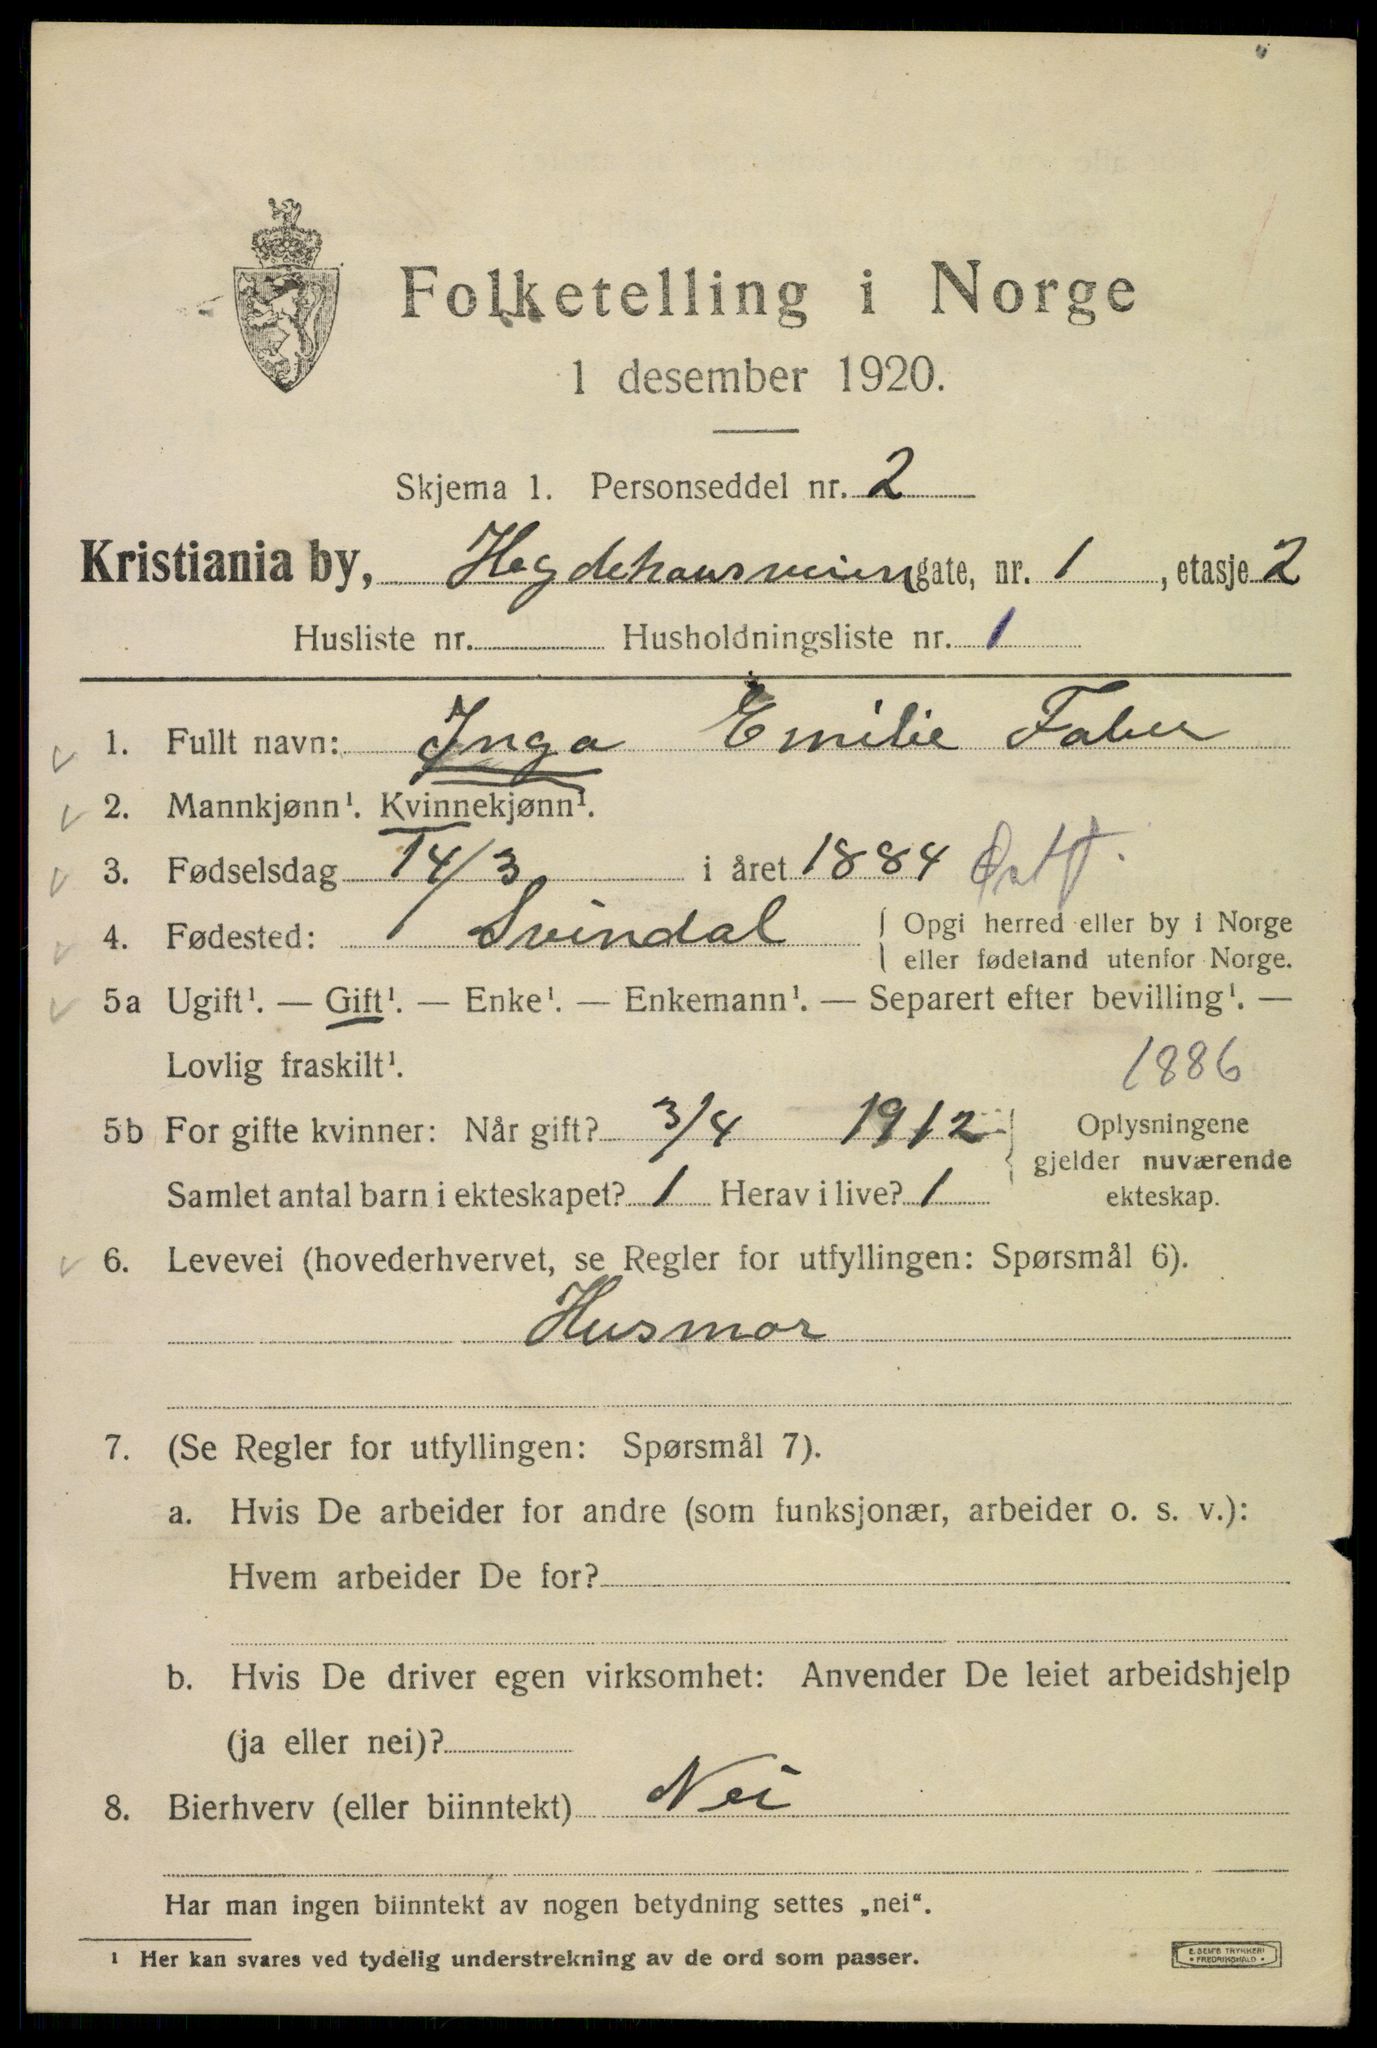 Folketelling i Norge
1 desember 1920.
Skjema 1. Personseddel nr. 2
Kristiania by, Hegdehausveien gate, nr. 1, etasje 2
Husliste nr. Husholdningsliste nr. 1
1. Fullt navn: Inga Emilie Faber
2. Mannkjønn¹. Kvinnekjønn¹.
3. Fødselsdag 14/3 i året 1884 Østf.
4. Fødested: Svindal { Opgi herred eller by i Norge
eller fødeland utenfor Norge.
5a Ugift¹. — Gift¹. — Enke¹. — Enkemann¹. — Separert efter bevilling¹. —
Lovlig fraskilt¹. 1886
5b For gifte kvinner: Når gift? 3/4 1912 } Oplysningene
gjelder nuværende
Samlet antal barn i ekteskapet? 1 Herav i live? 1 ekteskap.
6. Levevei (hovederhvervet, se Regler for utfyllingen: Spørsmål 6).
Husmor
7. (Se Regler for utfyllingen: Spørsmål 7).
a. Hvis De arbeider for andre (som funksjonær, arbeider o. s. v.):
Hvem arbeider De for?
b. Hvis De driver egen virksomhet: Anvender De leiet arbeidshjelp
(ja eller nei)?
8. Bierhverv (eller biinntekt) Nei
Har man ingen biinntekt av nogen betydning settes „nei“.
¹ Her kan svares ved tydelig understrekning av de ord som passer.
E. SEM'S TRYKKERI
• FREDRIKSHALD •